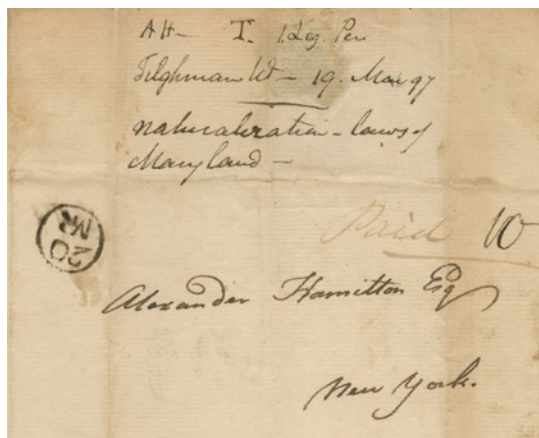 AH- T. 1. Leg. Per
Tilghman W- 19. Mar 97
naturalization - laws of
Maryland -
20
MR
Paid 10
Alexander Hamilton Esq
New York.